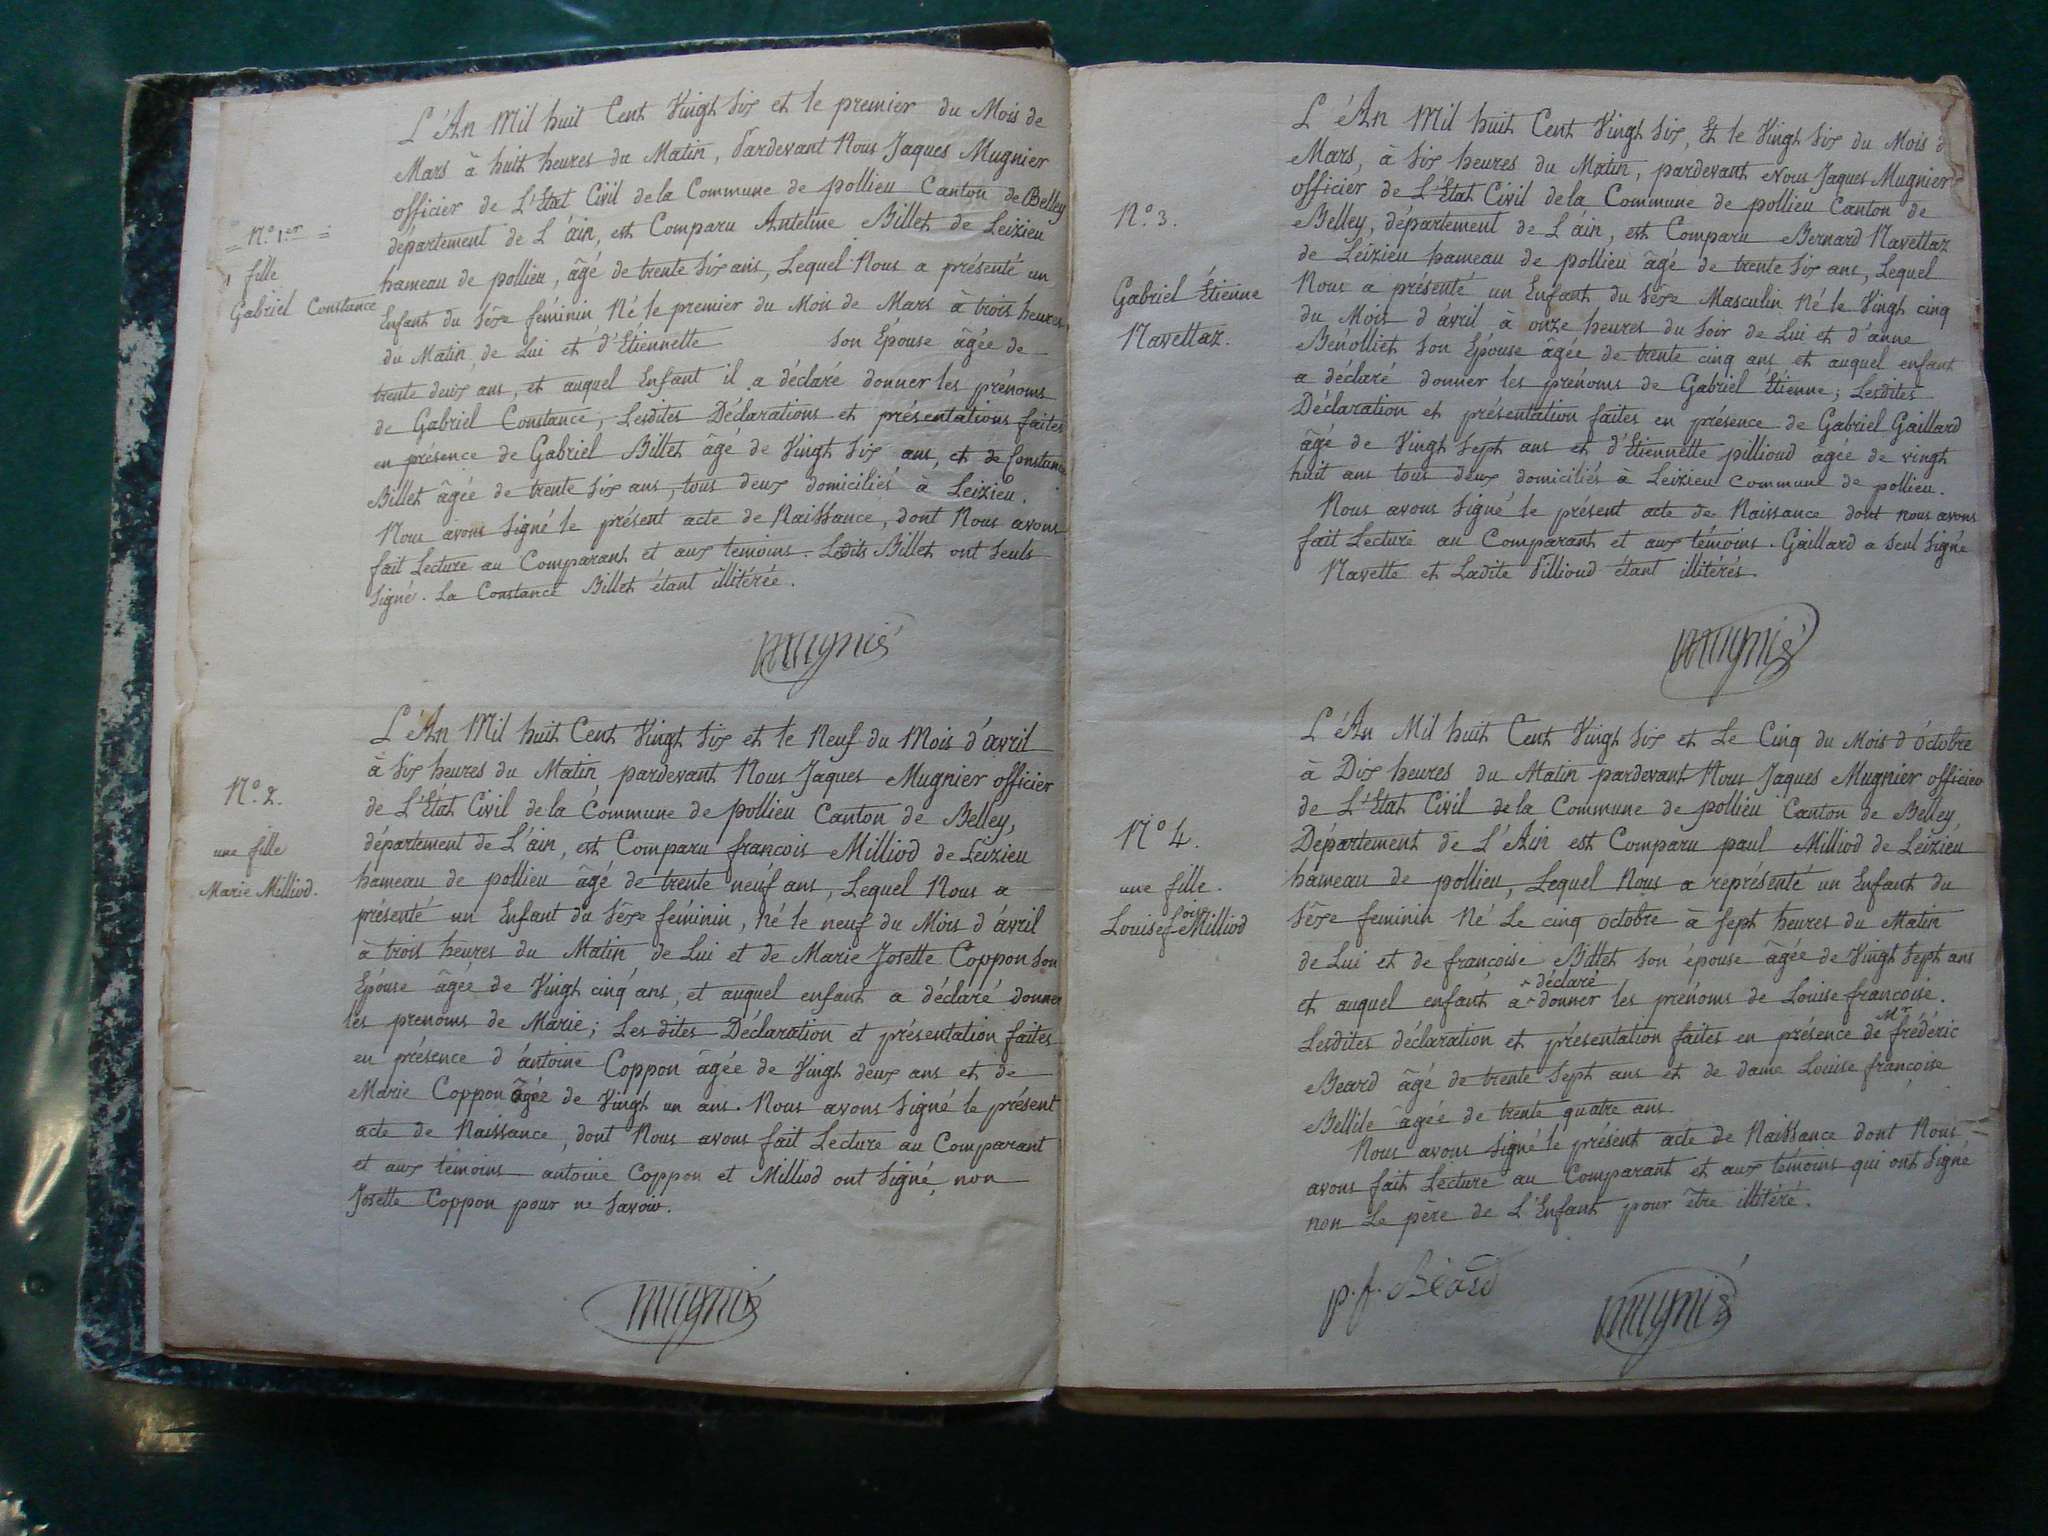 = N.º 1.er =
fille
Gabriel Constance
L'éAn Mil huit Cent Vingt Six et le premier du Mois de
Mars à huit heures du Matin, Pardevant Nous Jaques Mugnier
officier de L'Etat Civil de la Commune de pollieu Canton de Belley
département de L'áin, est Comparu Antelme Billet de Leizieu
hameau de pollieu, âgé de trente Six ans, Lequel Nous a présenté un
Enfant du Séxe féminin Né le premier du Mois de Mars à trois heures
du Matin, de Lui et d'Étiennette son Epouse âgée de
trente deux ans, et auquel Enfant il a déclaré donner les prénoms
de Gabriel Constance; Lesdites Déclarations et présentations faites
en présence de Gabriel Billet âgé de Vingt Six ans, et de Constance
Billet âgée de trente Six ans, tous deux domiciliés à Leizieu.
Nous avons Signé le présent acte de Naissance, dont Nous avons
fait Lecture au Comparant et aux temoins. Ledits Billet ont Seuls
Signé. La Constance Billet étant illitérée.
Mugnié
N.º 2.
une fille
Marie Milliod.
L'éAn Mil huit Cent Vingt Six et le Neuf du Mois d'ávril
à Six heures du Matin pardevant Nous Jaques Mugnier officier
de L'Etat Civil de la Commune de pollieu Canton de Belley,
département de L'áin, est Comparu francois Milliod de Leizieu
hameau de pollieu âgé de trente neuf ans, Lequel Nous a
présenté un Enfant du Séxe féminin, né le neuf du Mois d'ávril
à trois heures du Matin de Lui et de Marie Josette Coppon Son
Epouse âgée de Vingt cinq ans, et auquel enfant a déclaré donner
les prenoms de Marie; Les dites Déclaration et présentation faites
en présence d'ántoine Coppon âgée de Vingt deux ans et de
Marie Coppon âgée de Vingt un ans. Nous avons Signé le présent
acte de Naissance, dont Nous avons fait Lecture au Comparant
et aux témoins antoine Coppon et Milliod ont Signé, non
Josette Coppon pour ne Savoir.
Mugnié
N.º 3.
Gabriel Étienne
Navettaz.
L'éAn Mil huit Cent Vingt Six, Et le Vingt Six du Mois d
Mars, à Six heures du Matin, pardevant Nous Jaques Mugnier
officier de L'Etat Civil de la Commune de pollieu Canton de
Belley, département de L'áin, est Comparu Bernard Navettaz
de Leizieu hameau de pollieu âgé de trente Six ans, Lequel
Nous a présenté un Enfant du Séxe Masculin Né le Vingt cinq
du Mois d'ávril à onze heures du Soir de Lui et d'anne
Benolliet Son Epouse âgée de trente cinq ans et auquel enfant
a déclaré donner les prénoms de Gabriel Étienne; Lesdites
Déclaration et présentation faites en présence de Gabriel Gaillard
âgé de Vingt Sept ans et d'Etiennette pillioud agée de vingt
huit ans tous deux domiciliés à Leizieu commune de pollieu.
Nous avons Signé le présent acte de Naissance dont nous avons
fait Lecture au Comparant et aux témoins. Gaillard a Seul Signé
Navette et Ladite Pillioud étant illitérés.
Mugnié
N.º 4.
une fille.
Louise f.oise Milliod
L'éAn Mil huit Cent Vingt Six et Le Cinq du Mois d'Octobre
à Dix heures du Matin pardevant Nous Jaques Mugnier officier
de L'Etat Civil de la Commune de pollieu Canton de Belley,
Département de L'Ain est Comparu paul Milliod de Leizieu
hameau de pollieu, Lequel Nous a représenté un Enfant du
Séxe feminin Né Le cinq octobre à Sept heures du Matin
de Lui et de françoise Billet Son épouse âgée de Vingt Sept ans
et auquel enfant a déclaré donner les prénoms de Louise francoise.
Lesdites déclaration et présentation faites en présence de Mr frédéric
Beard âgé de trente Sept ans et de dame Louise françoise
Bellile âgée de trente quatre ans.
Nous avons Signé le présent acte de Naissance dont Nous
avons fait Lecture au Comparant et aux témoins qui ont Signé
non Le père de L'Enfant pour être illitéré.
p. f. Béard
Mugnié